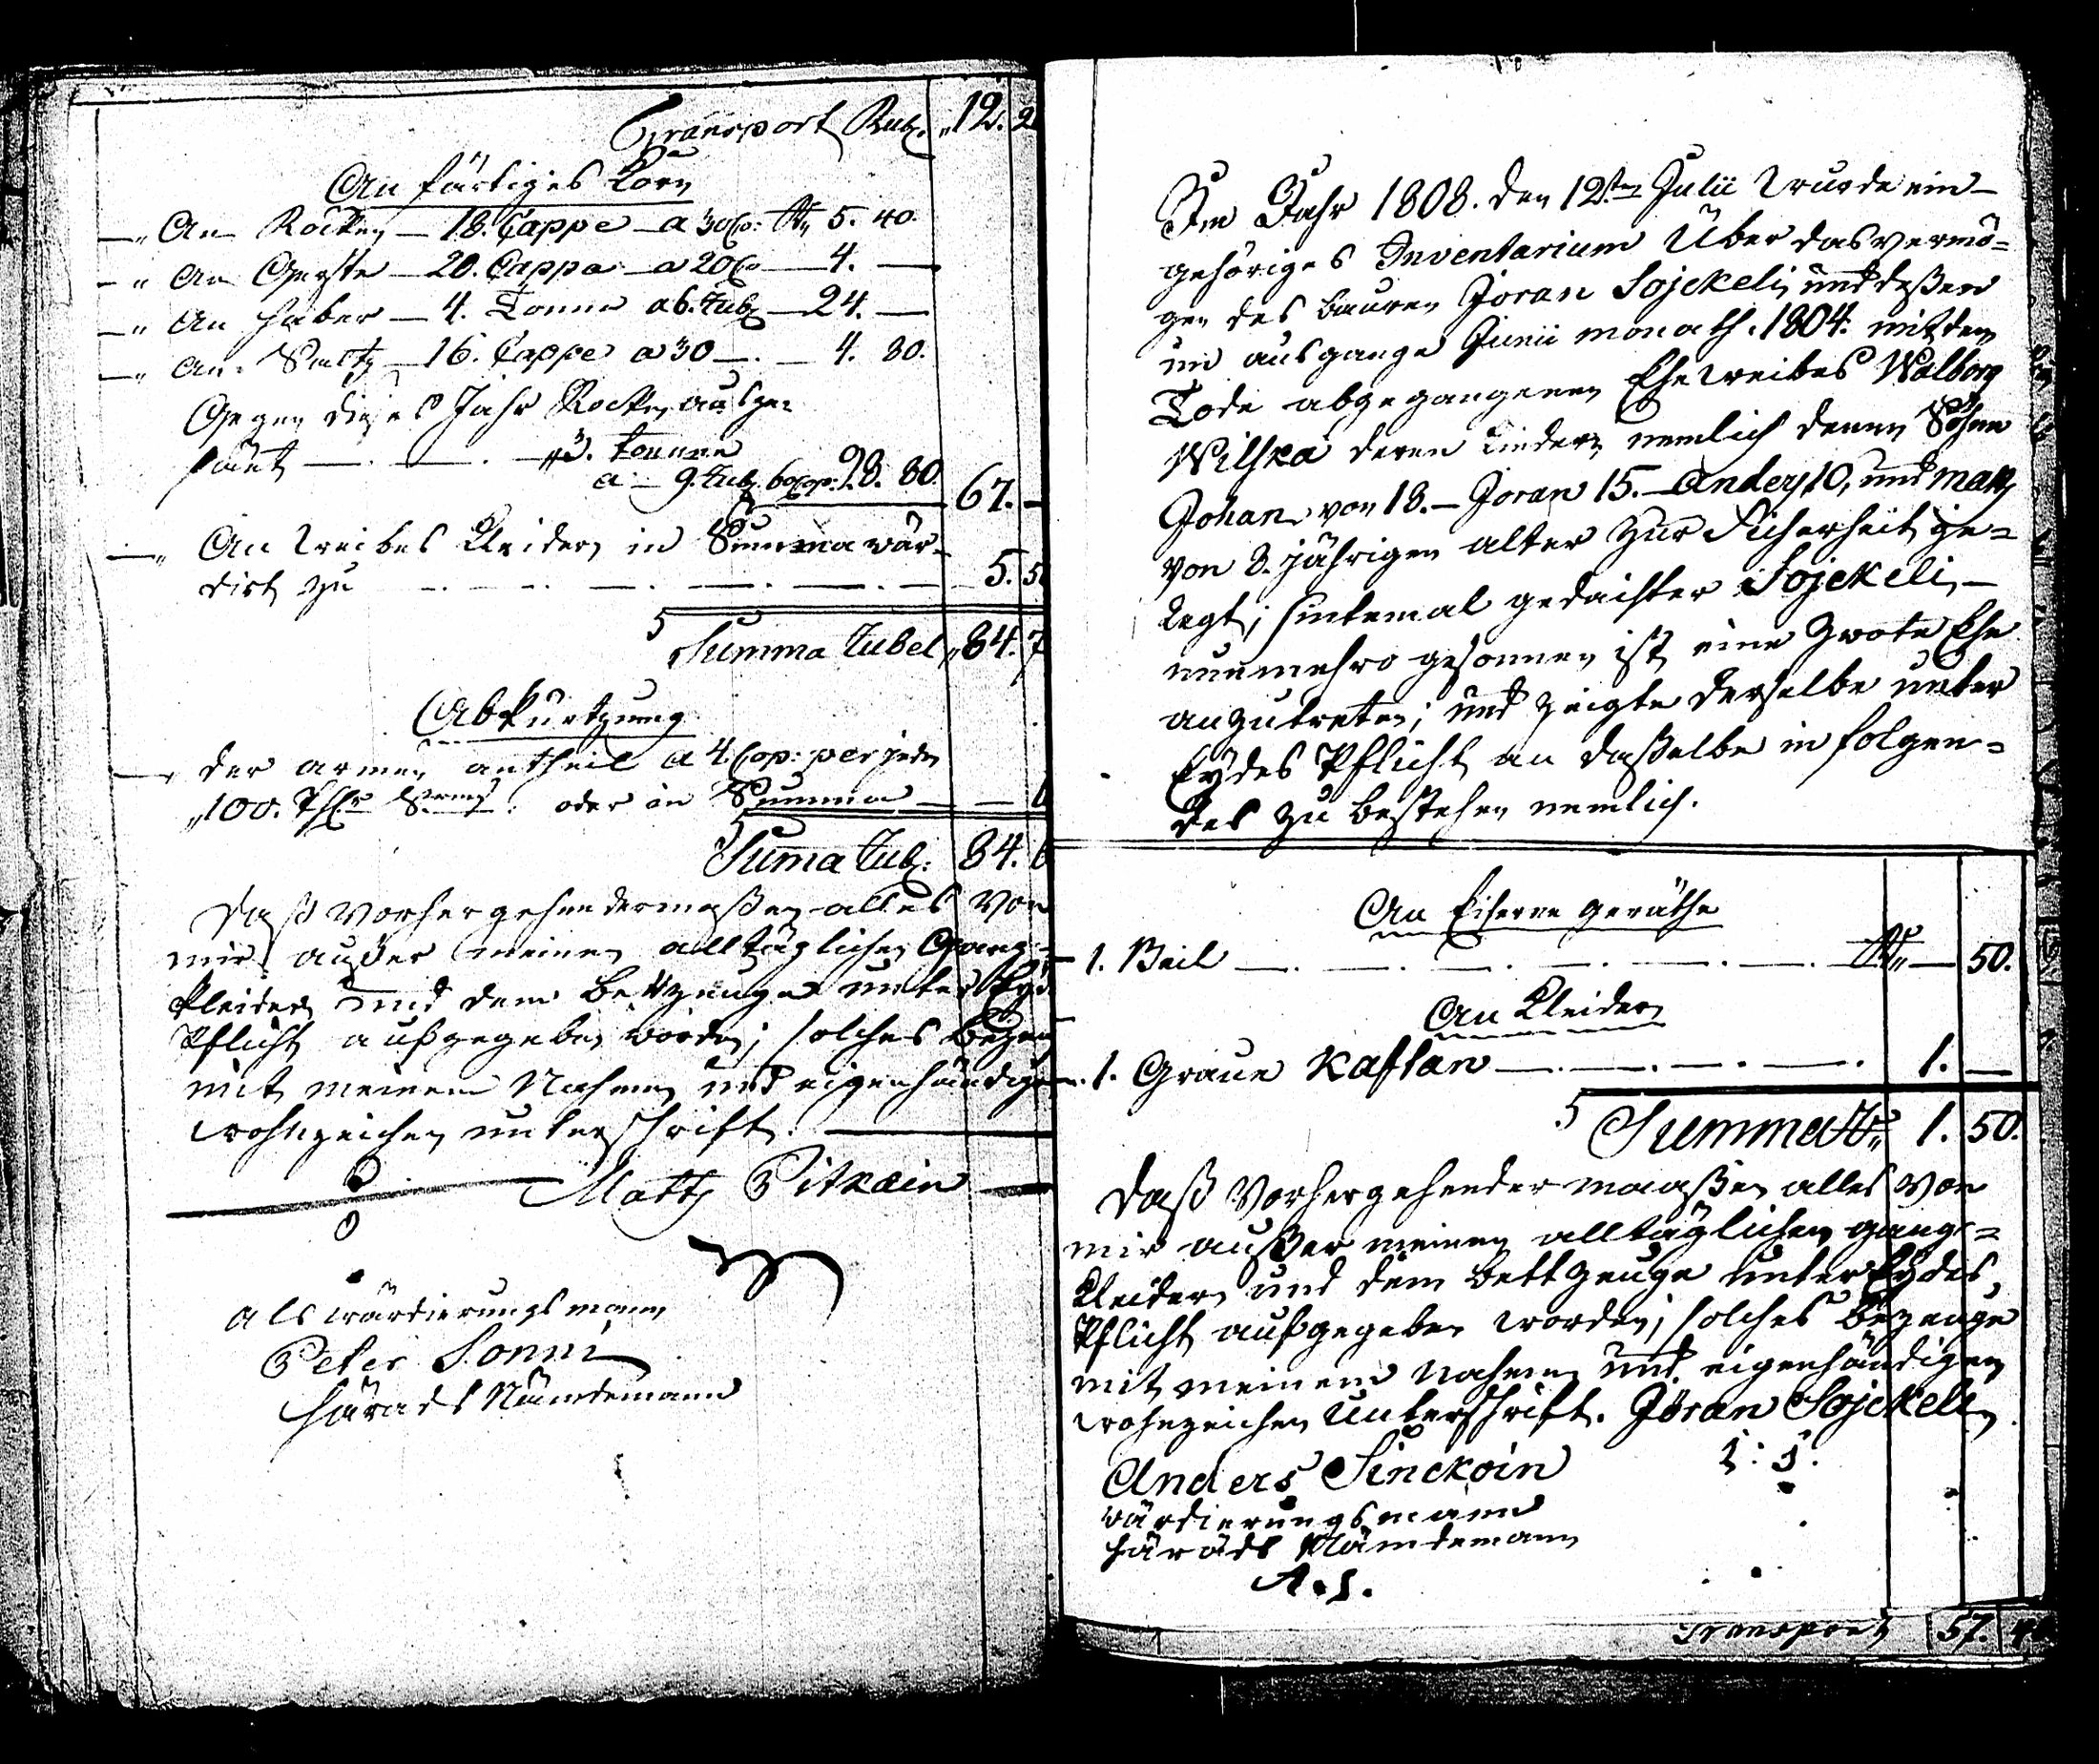 Transport Rub. 12.
An färtiges Korn
An Rocken — 18. Cappe — a 30 Cop: R. 5. 40.
An Gerste — 20. Cappa — a 20 Co — 4. —
An Haber — 4. Tonne a 6. Rub. — 24. —
An Maltz — 16. Cappe a 30 — 4. 80.
Gegen dieses Jahr Rocken ausge-
säet — 3. tonnen
a — 9. Rub. 60 Cop. 28. 80. 67. —
An Weibes Kleidern in Summa wär-
dirt zu — 5.
Summa Rubel 84.
Abkürtzung
der armen antheil a 4. Cop: per jede
100. Thlr oder in Summa —
Suma Rub: 84.
Daß vorhergehendermaßen alles von
mir außer meinen alltäglichen Gang-
kleidern und dem Bettzeuge unter Eyd
Pflicht aufgegeben worden; solches bezeug
mit meinem Nahmen und eigenhändigen
wohnzeichen unterschrift.
Matts Pitkäin
als wärdierungsmann
Peter Sonni
Härads Nämdemann
Im Jahr 1808. den 12ten Julii wurde ein
gehöriges Inventarium Über das vermö=
gen des bauren Joran Sojekeli, und deßen
im ausgange Junii monath. 1804. mit dem
Tode abgegangenen Eheweibes Walborg
Wilska deren Kindern nemlich denen Söhne
Johan von 18. — Joran 15. — Anders 10, und Matts
von 8. jährigen alter zur Sicherheit ge=
legt; sintemal gedachter Sojekeli —
nunmehro gesonnen ist, eine zwote Ehe
anzutreten; und zeigte derselbe unter
Eydes Pflicht an daßelbe in folgen=
des zu bestehen nemlich.
An Eiserne geräthe
1. Beil — R. — 50.
An Kleidern
1. Graue Kaftan — 1. —
Summa R. 1. 50.
Daß vorhergehender maaßen alles von
mir außer meinen alltäglichen gang=
kleidern und dem bettzeuge unter Eydes
Pflicht aufgegeben worden; solches bezeuge
mit meinem nahmen und eigenhändigen
wohnzeichen Unterschrift. Jöran Sojekeli
Anders Sinckoin
wärdierungsmann
härads Nämdemann
A. S.
Transport 57.